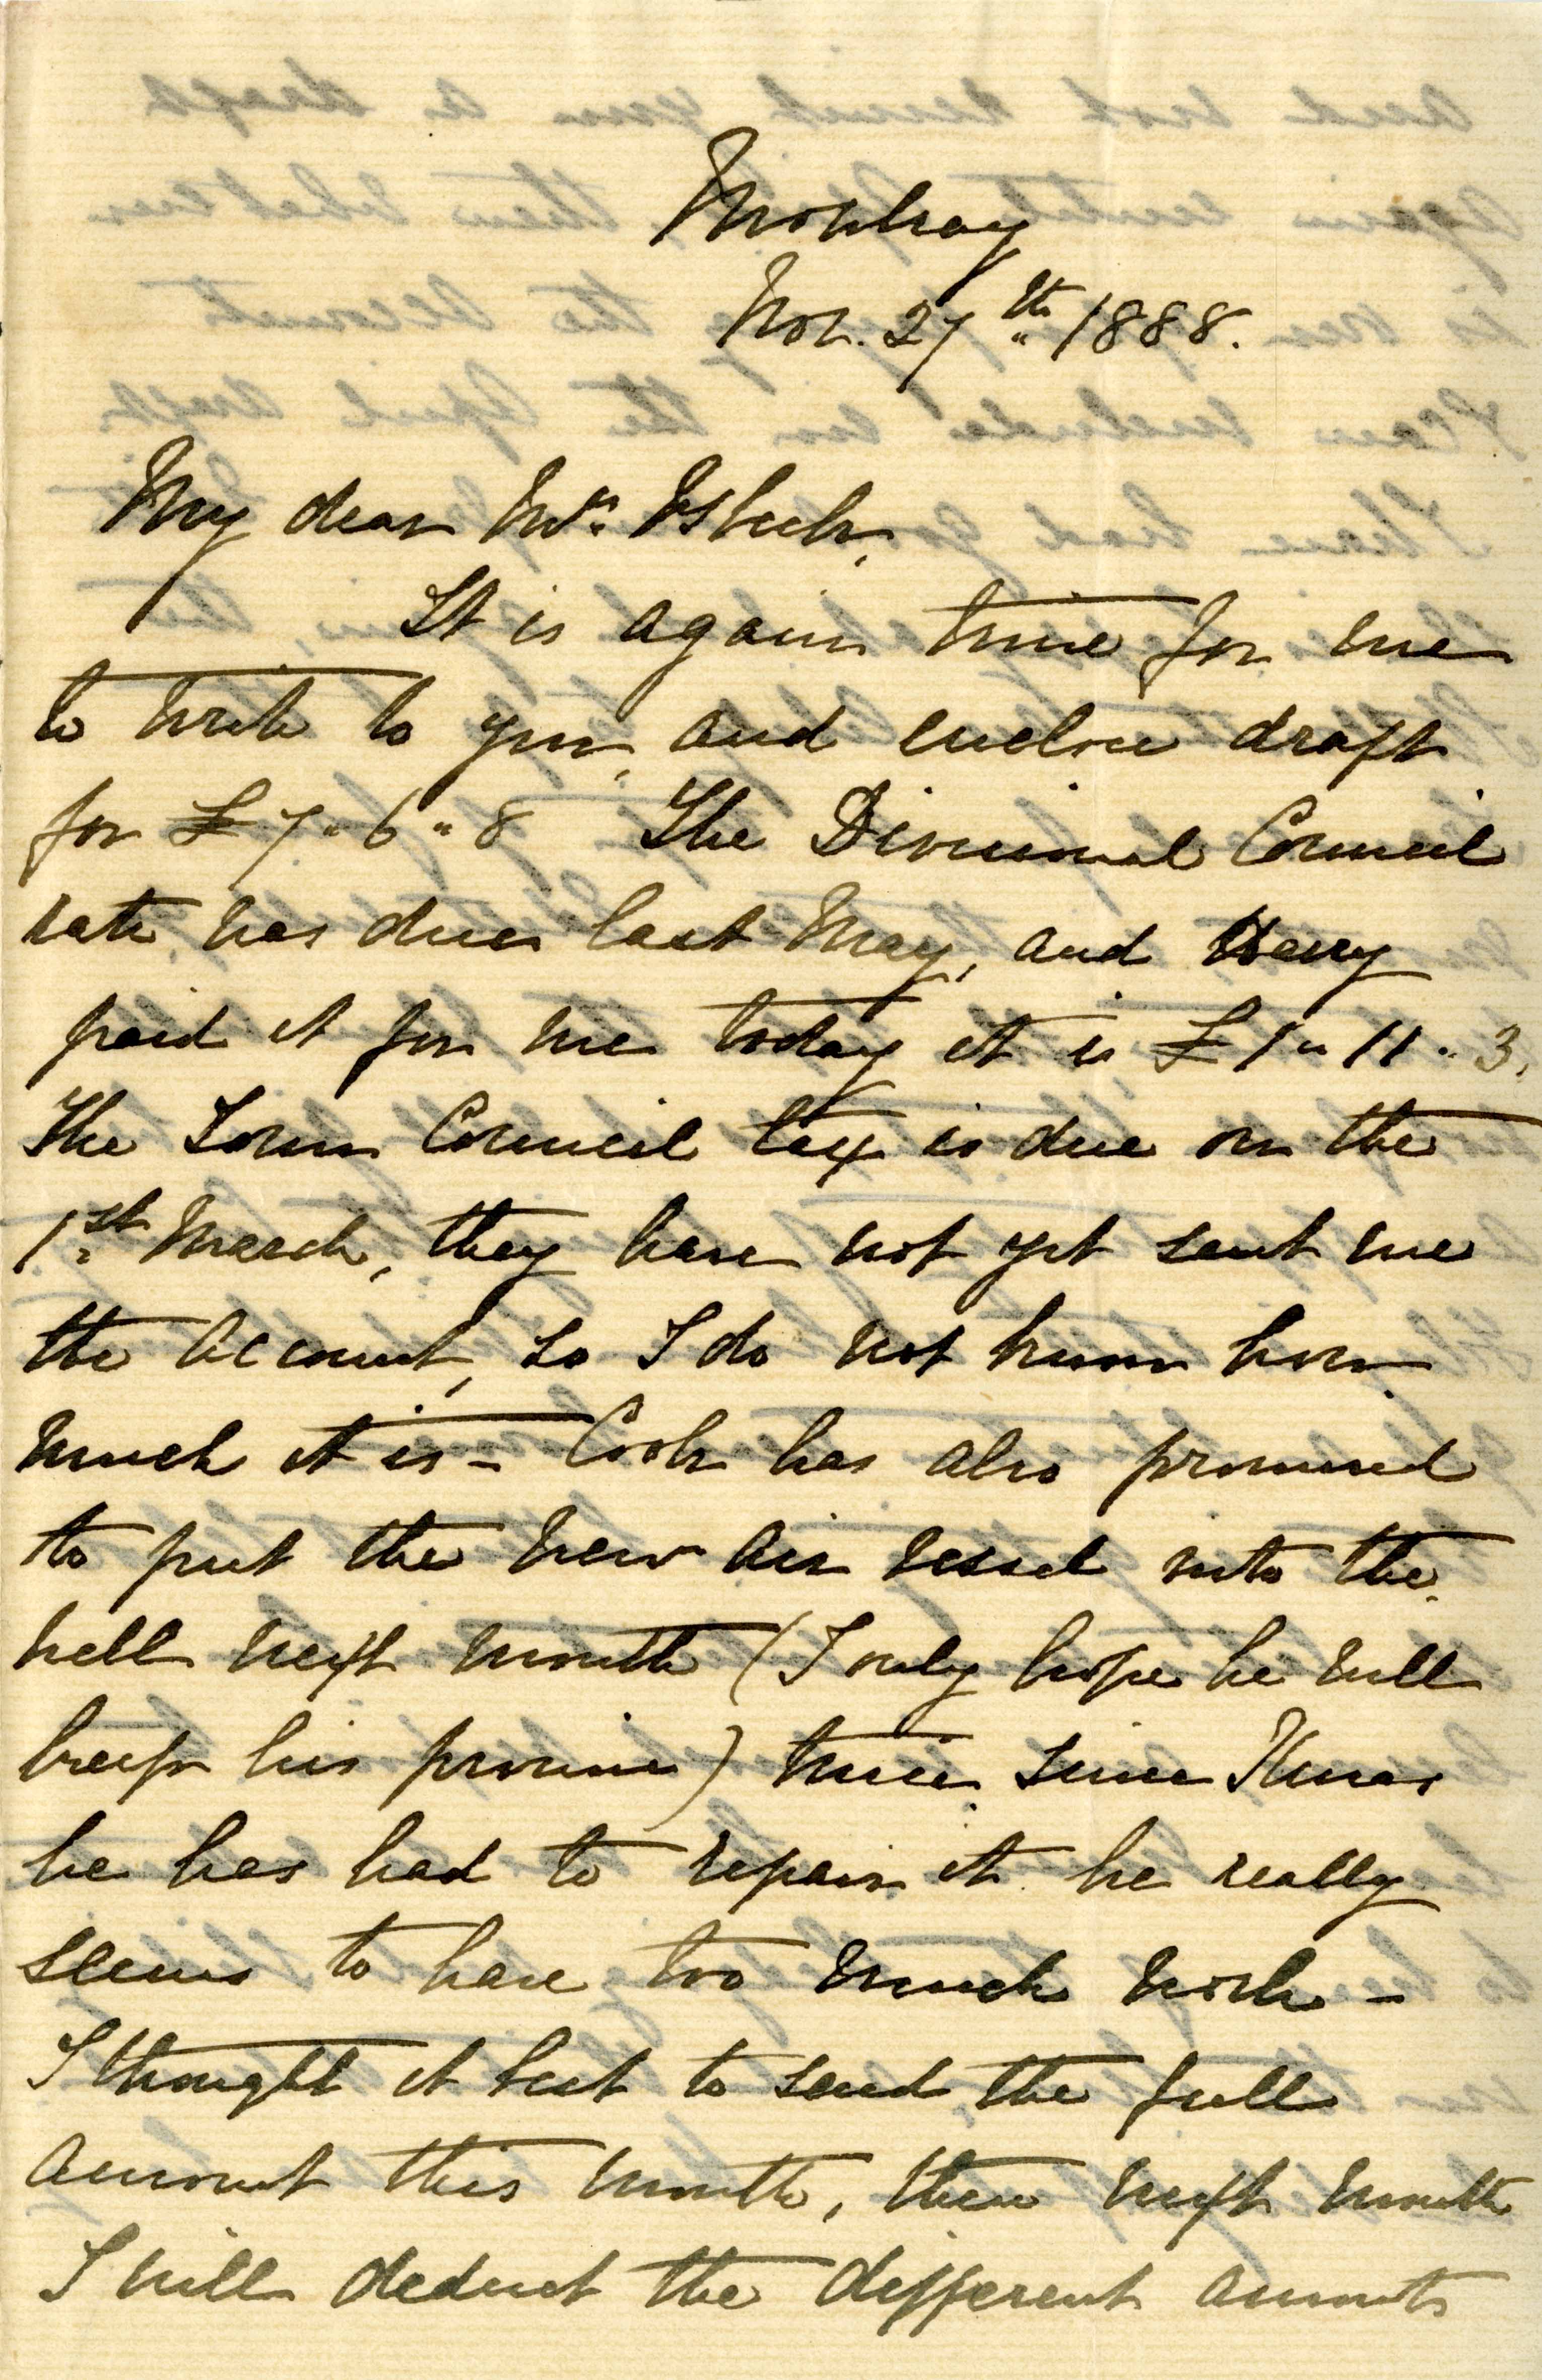 Mowbray
Nov. 27th 1888.
My dear Mrs
It is again time for me
to write to you, and enclose draft
for £7"6"8 The Divisional Council
rate was due last May, and Harry
paid it for me today it is £1"11"3.
The Town Council tax is due on the
1st March, they have not yet sent me
the account, so I do not know how
much it is – Cook has also promised
to put the new air vessel into the
well next month (I only hope he will
keep his promise) twice since Xmas
he has had to repair it he really
seems to have too much work –
I thought it best to send the full
amount this month, then next month
I will deduct the different amounts